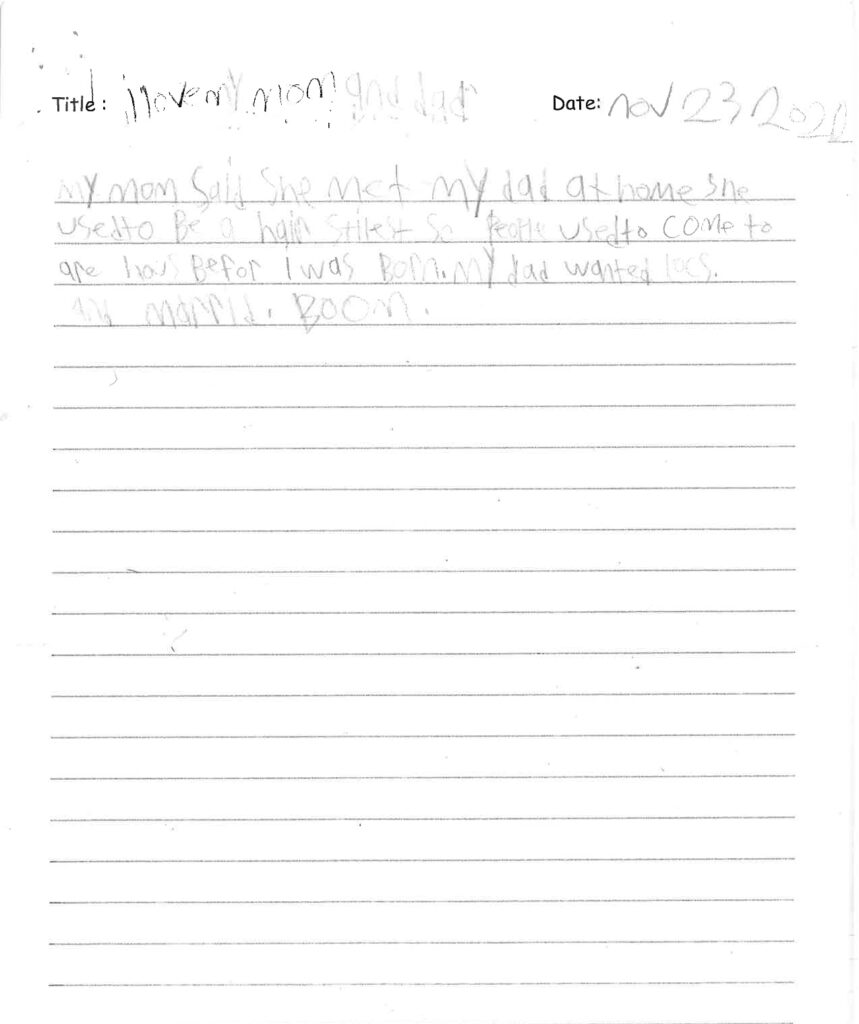 Title: I love my mom and dad Date: nov 23 2021
My mom Said She met my dad at home she
usedto Be a hair stilest So People usedto COMe to
are hous Befor I was Born. My dad wanted locs.
and marrid. BOOM.